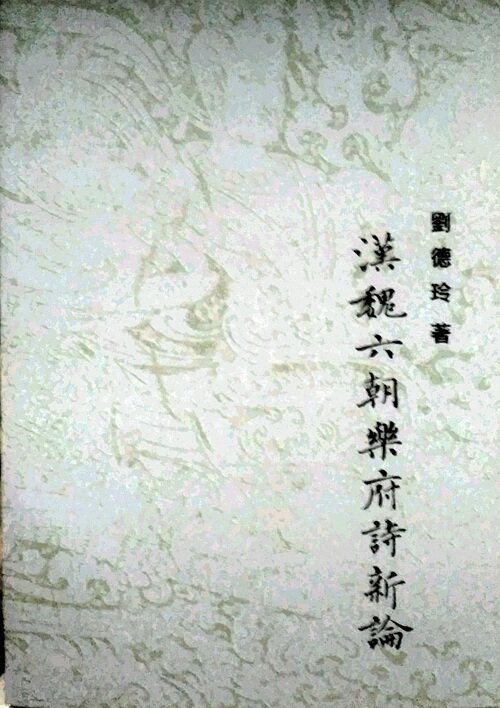 劉德玲 著
漢魏六朝樂府詩新論